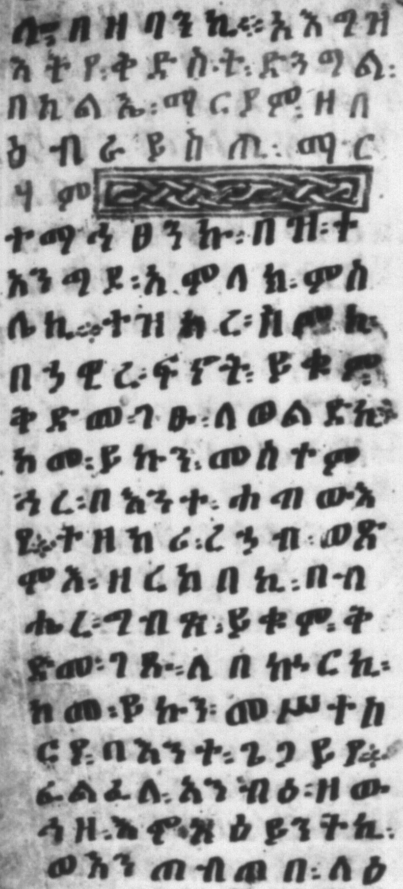 በዘባንኪ። እእግዝ
እትየ፡ቅድስት፡ድንግል፡
በክልኤ፡ማርያም፡ዘበ
ዕብራይስጢ፡ማር
ሃም
ተማኅፀንኩ፡በዝ፡ተ
አንግዶ፡አምላክ፡ምስ
ሌኪ። ተዝካረ፡ከመኪ፡
በኀዊረ፡ፍኖት፡ይቁም
ቅድመ፡ገጹ፡ለወልድኪ፡
ከመ፡ይኩን፡መስተም
ሕረ፡በእንተ፡ሐጣውእ
የ። ተዘከሪ፡ረኀብ፡ወጽ
ምእ፡ዘረከበኪ፡በብ
ሔረ፡ግብጽ፡ይቁም፡ቅ
ድመ፡ገጹ፡ለበኵርኪ፡
ከመ፡ይኩን፡መሥተስ
ርየ፡በእንተ፡ጌጋይየ።
ፈልፈለ፡አንብዕ፡ዘው
ኅዘ፡እምአዕይንትኪ፡
ወአንጠብጠበ፡ላዕ